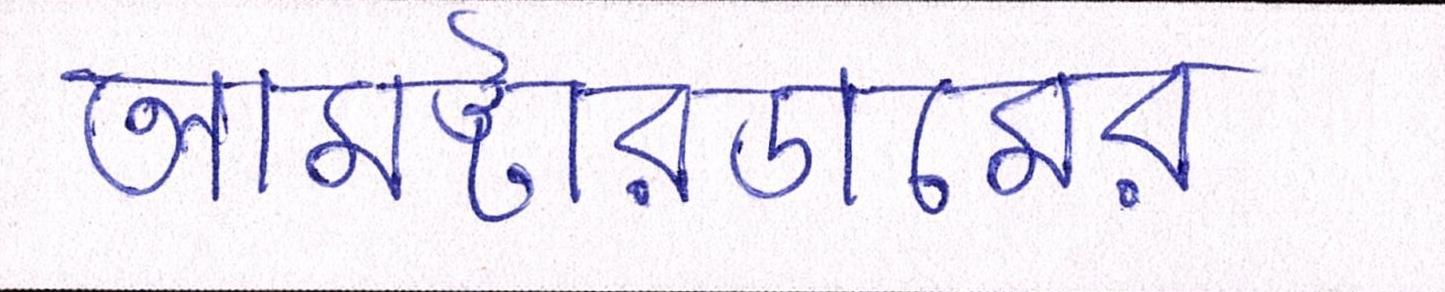 আমস্টারডামের